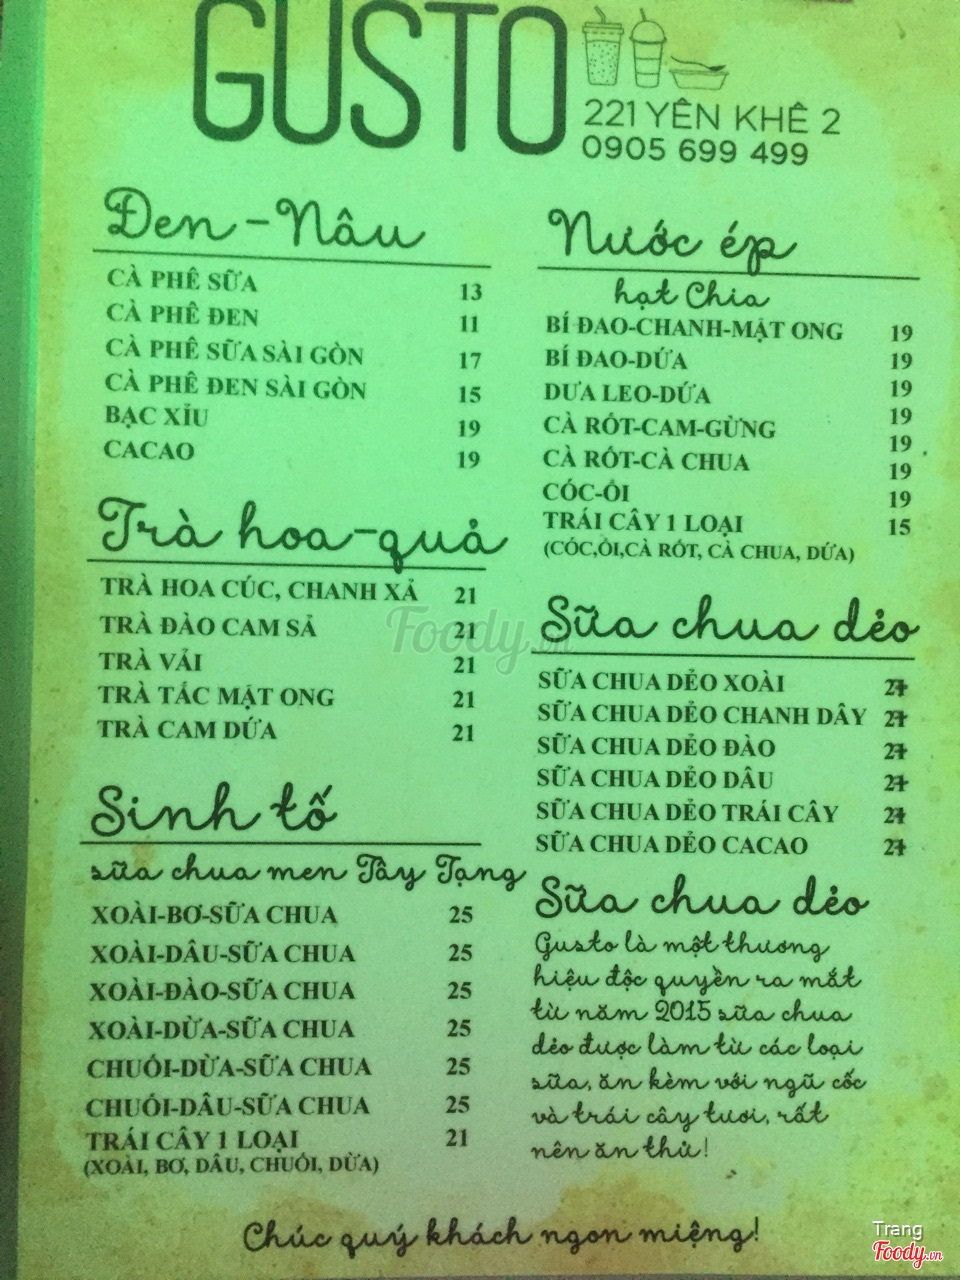 GUSTO
221 YÊN KHÊ 2
0905 699 499
Đen - Nâu
CÀ PHÊ SỮA 13
CÀ PHÊ ĐEN 11
CÀ PHÊ SỮA SÀI GÒN 17
CÀ PHÊ ĐEN SÀI GÒN 15
BẠC XỈU 19
CACAO 19
Trà hoa-quả
TRÀ HOA CÚC, CHANH XẢ 21
TRÀ ĐÀO CAM SẢ 21
TRÀ VẢI 21
TRÀ TẮC MẬT ONG 21
TRÀ CAM DỨA 21
Sinh tố
sữa chua men Tây Tạng
XOÀI-BƠ-SỮA CHUA 25
XOÀI-DÂU-SỮA CHUA 25
XOÀI-ĐÀO-SỮA CHUA 25
XOÀI-DỪA-SỮA CHUA 25
CHUỐI-DỪA-SỮA CHUA 25
CHUỐI-DÂU-SỮA CHUA 25
TRÁI CÂY 1 LOẠI 21
(XOÀI, BƠ, DÂU, CHUỐI, DỪA)
Nước ép
hạt Chia
BÍ ĐAO-CHANH-MẬT ONG 19
BÍ ĐAO-DỨA 19
DƯA LEO-DỨA 19
CÀ RỐT-CAM-GỪNG 19
CÀ RỐT-CÀ CHUA 19
CÓC-ỔI 19
19
TRÁI CÂY 1 LOẠI 15
(CÓC,ỔI,CÀ RỐT, CÀ CHUA, DỨA)
Sữa chua dẻo
SỮA CHUA DẺO XOÀI
SỮA CHUA DẺO CHANH DÂY
SỮA CHUA DẺO ĐÀO
SỮA CHUA DẺO DÂU
SỮA CHUA DẺO TRÁI CÂY
SỮA CHUA DẺO CACAO
Sữa chua dẻo
Gusto là một thương
hiệu độc quyền ra mắt
từ năm 2015 sữa chua
dẻo được làm từ các loại
sữa, ăn kèm với ngũ cốc
và trái cây tươi, rất
nên ăn thử!
Chúc quý khách ngon miệng!
Foody.vn
Trang
Foody.vn